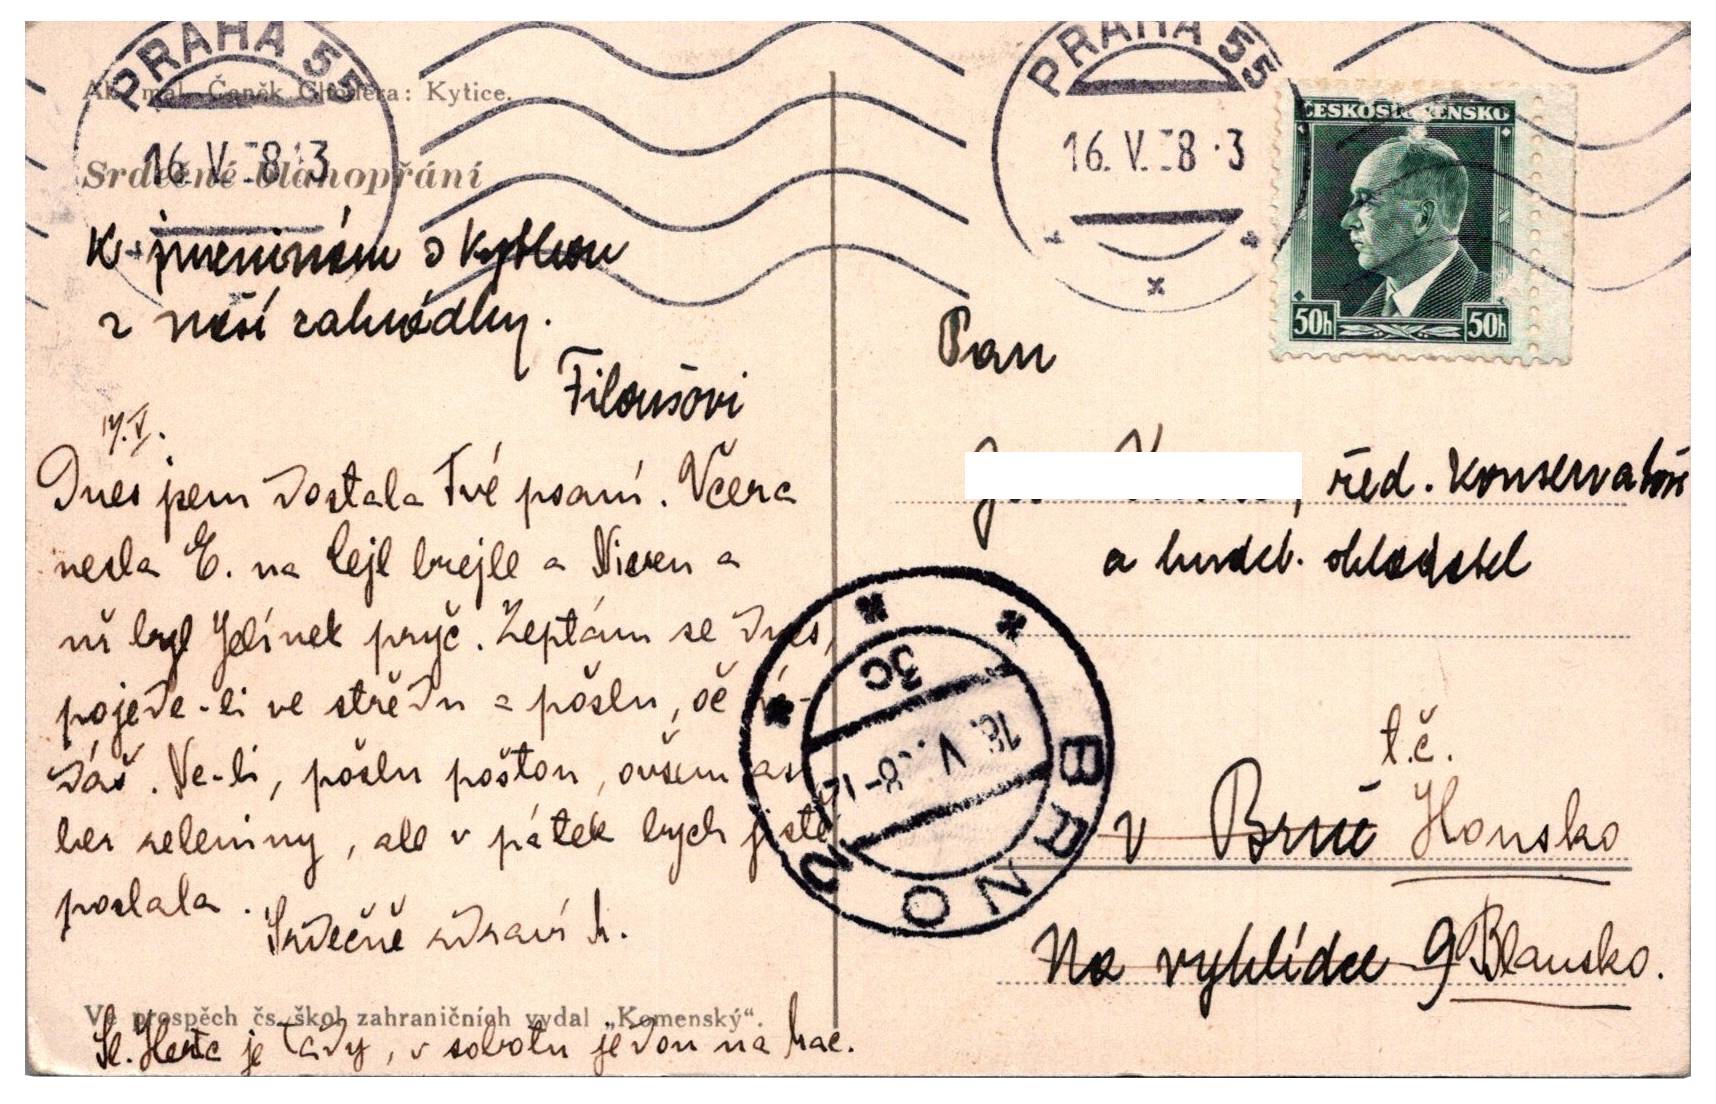 PRAHA 55
16. V. 38·3
PRAHA 55
16. V. 38·3
Ak. mal. Čeněk Choděra: Kytice.
Srdečné blahopřání
K jmeninám s kytkou
z naší zahrádky.
Filoušovi
17. V.
Dnes jsem dostala Tvé psaní. Včera
nesla E. na brejle a
byl Jelínek pryč. Zeptám se dnes,
pojede-li ve středu a pošlu, oč
dáš. Ne-li, pošlu poštou, ovšem
bez zeleniny, ale v pátek bych jistě
poslala.
Srdečně zdraví
Ve prospěch čs. škol zahraničních vydal „Komenský".
je tady, v sobotu jedou na
ČESKOSLOVENSKO
50h 50h
Pan
, řed. konservatoř
a hudeb. skladatel
t.č.
v Brně Honsko
Na vyhlídce 9 Blansko.
BRNO 2
18. V. 38-12
3c